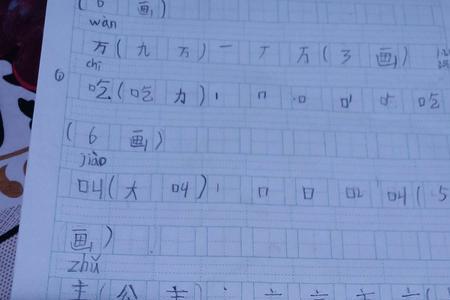 (6画)
wàn
万(九万)一丆万(3画)
chī
吃(吃力)丨口口吃
(6画)
jiào
叫(大叫)丨口叫(5
画)
zhǔ
主(公主)